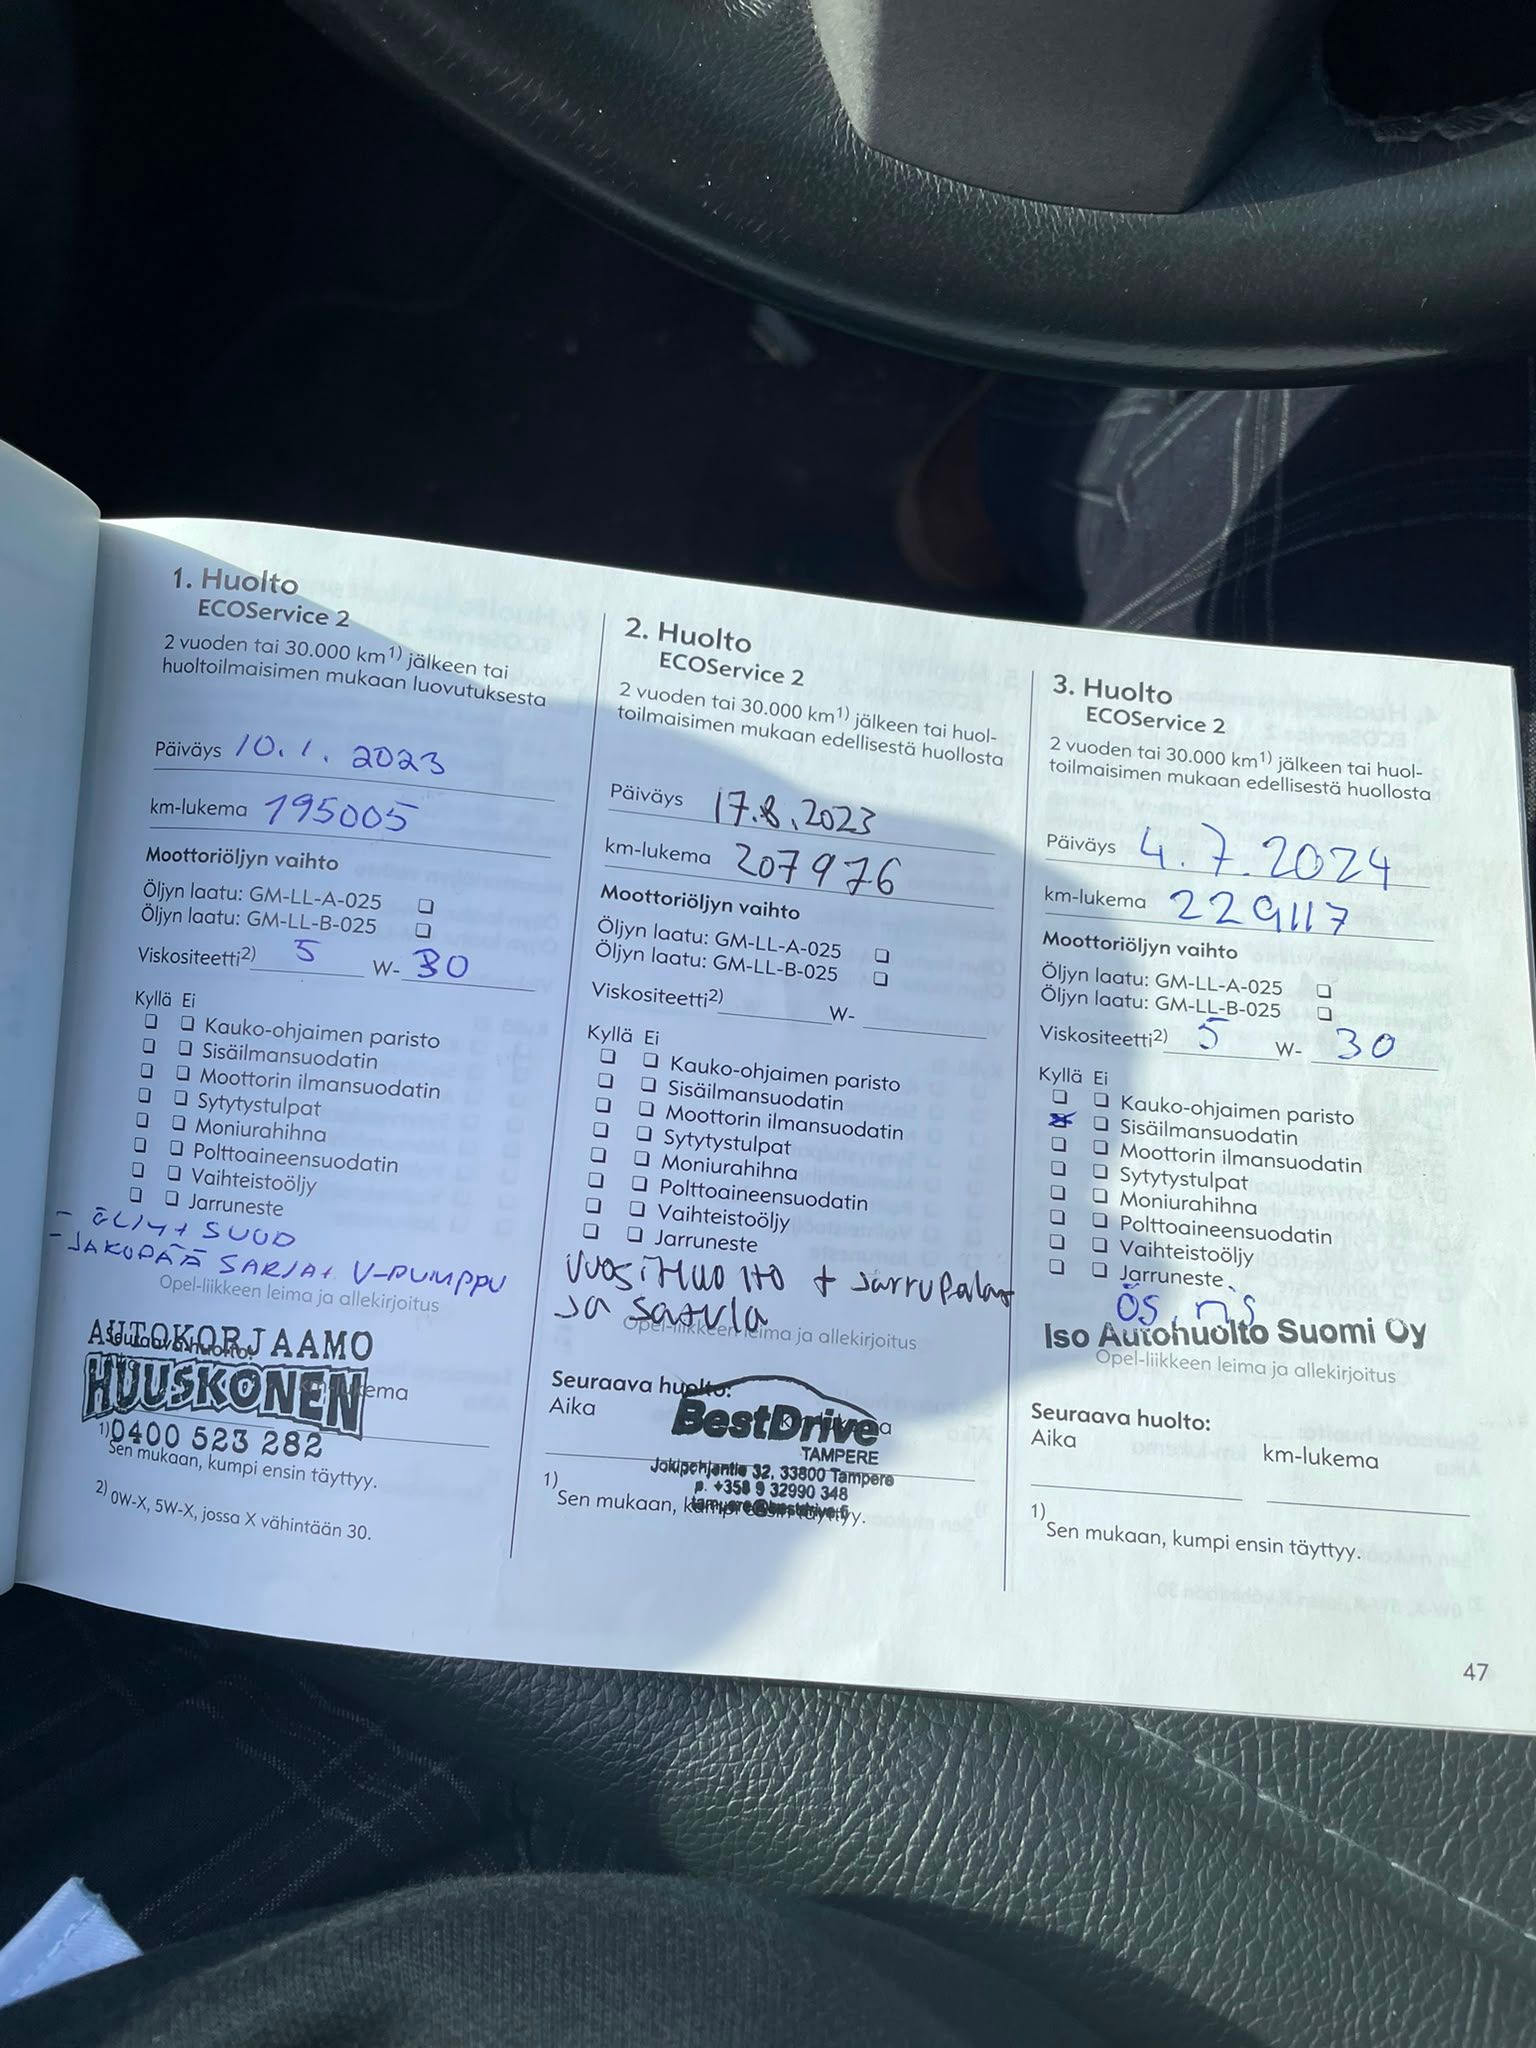 1. Huolto
ECOService 2
2 vuoden tai 30.000 km1) jälkeen tai
huoltoilmaisimen mukaan luovutuksesta
Päiväys 10.1.2023
km-lukema 195005
Moottoriöljyn vaihto
Öljyn laatu: GM-LL-A-025
Öljyn laatu: GM-LL-B-025
Viskositeetti2) 5 W- 30
Kyllä Ei
Kauko-ohjaimen paristo
Sisäilmansuodatin
Moottorin ilmansuodatin
Sytytystulpat
Moniurahihna
Polttoaineensuodatin
Vaihteistoöljy
Jarruneste
- ÖLJY + SUOD
- JAKOPÄÄ SARJA + V-PUMPPU
Opel-liikkeen leima ja allekirjoitus
AUTOKORJAAMO
Seuraava huolto:
HUUSKONEN
0400 523 282
1) Sen mukaan, kumpi ensin täyttyy.
2) 0W-X, 5W-X, jossa X vähintään 30.
2. Huolto
ECOService 2
2 vuoden tai 30.000 km1) jälkeen tai huol-
toilmaisimen mukaan edellisestä huollosta
Päiväys 17.8.2023
km-lukema 207976
Moottoriöljyn vaihto
Öljyn laatu: GM-LL-A-025
Öljyn laatu: GM-LL-B-025
Viskositeetti2) W-
Kyllä Ei
Kauko-ohjaimen paristo
Sisäilmansuodatin
Moottorin ilmansuodatin
Sytytystulpat
Moniurahihna
Polttoaineensuodatin
Vaihteistoöljy
Jarruneste
vuosiHuolto + Jarrupalat
ja satula
Opel-liikkeen leima ja allekirjoitus
Seuraava huolto:
Aika
BestDrive
TAMPERE
Jokipohjantie 32, 33800 Tampere
p. +358 9 32990 348
tampere@bestdrive.fi
1) Sen mukaan, kumpi ensin täyttyy.
3. Huolto
ECOService 2
2 vuoden tai 30.000 km1) jälkeen tai huol-
toilmaisimen mukaan edellisestä huollosta
Päiväys 4.7.2024
km-lukema 229117
Moottoriöljyn vaihto
Öljyn laatu: GM-LL-A-025
Öljyn laatu: GM-LL-B-025
Viskositeetti2) 5 W- 30
Kyllä Ei
Kauko-ohjaimen paristo
Sisäilmansuodatin
Moottorin ilmansuodatin
Sytytystulpat
Moniurahihna
Polttoaineensuodatin
Vaihteistoöljy
Jarruneste
Iso Autohuolto Suomi Oy
Opel-liikkeen leima ja allekirjoitus
Seuraava huolto:
Aika
km-lukema
1) Sen mukaan, kumpi ensin täyttyy.
47